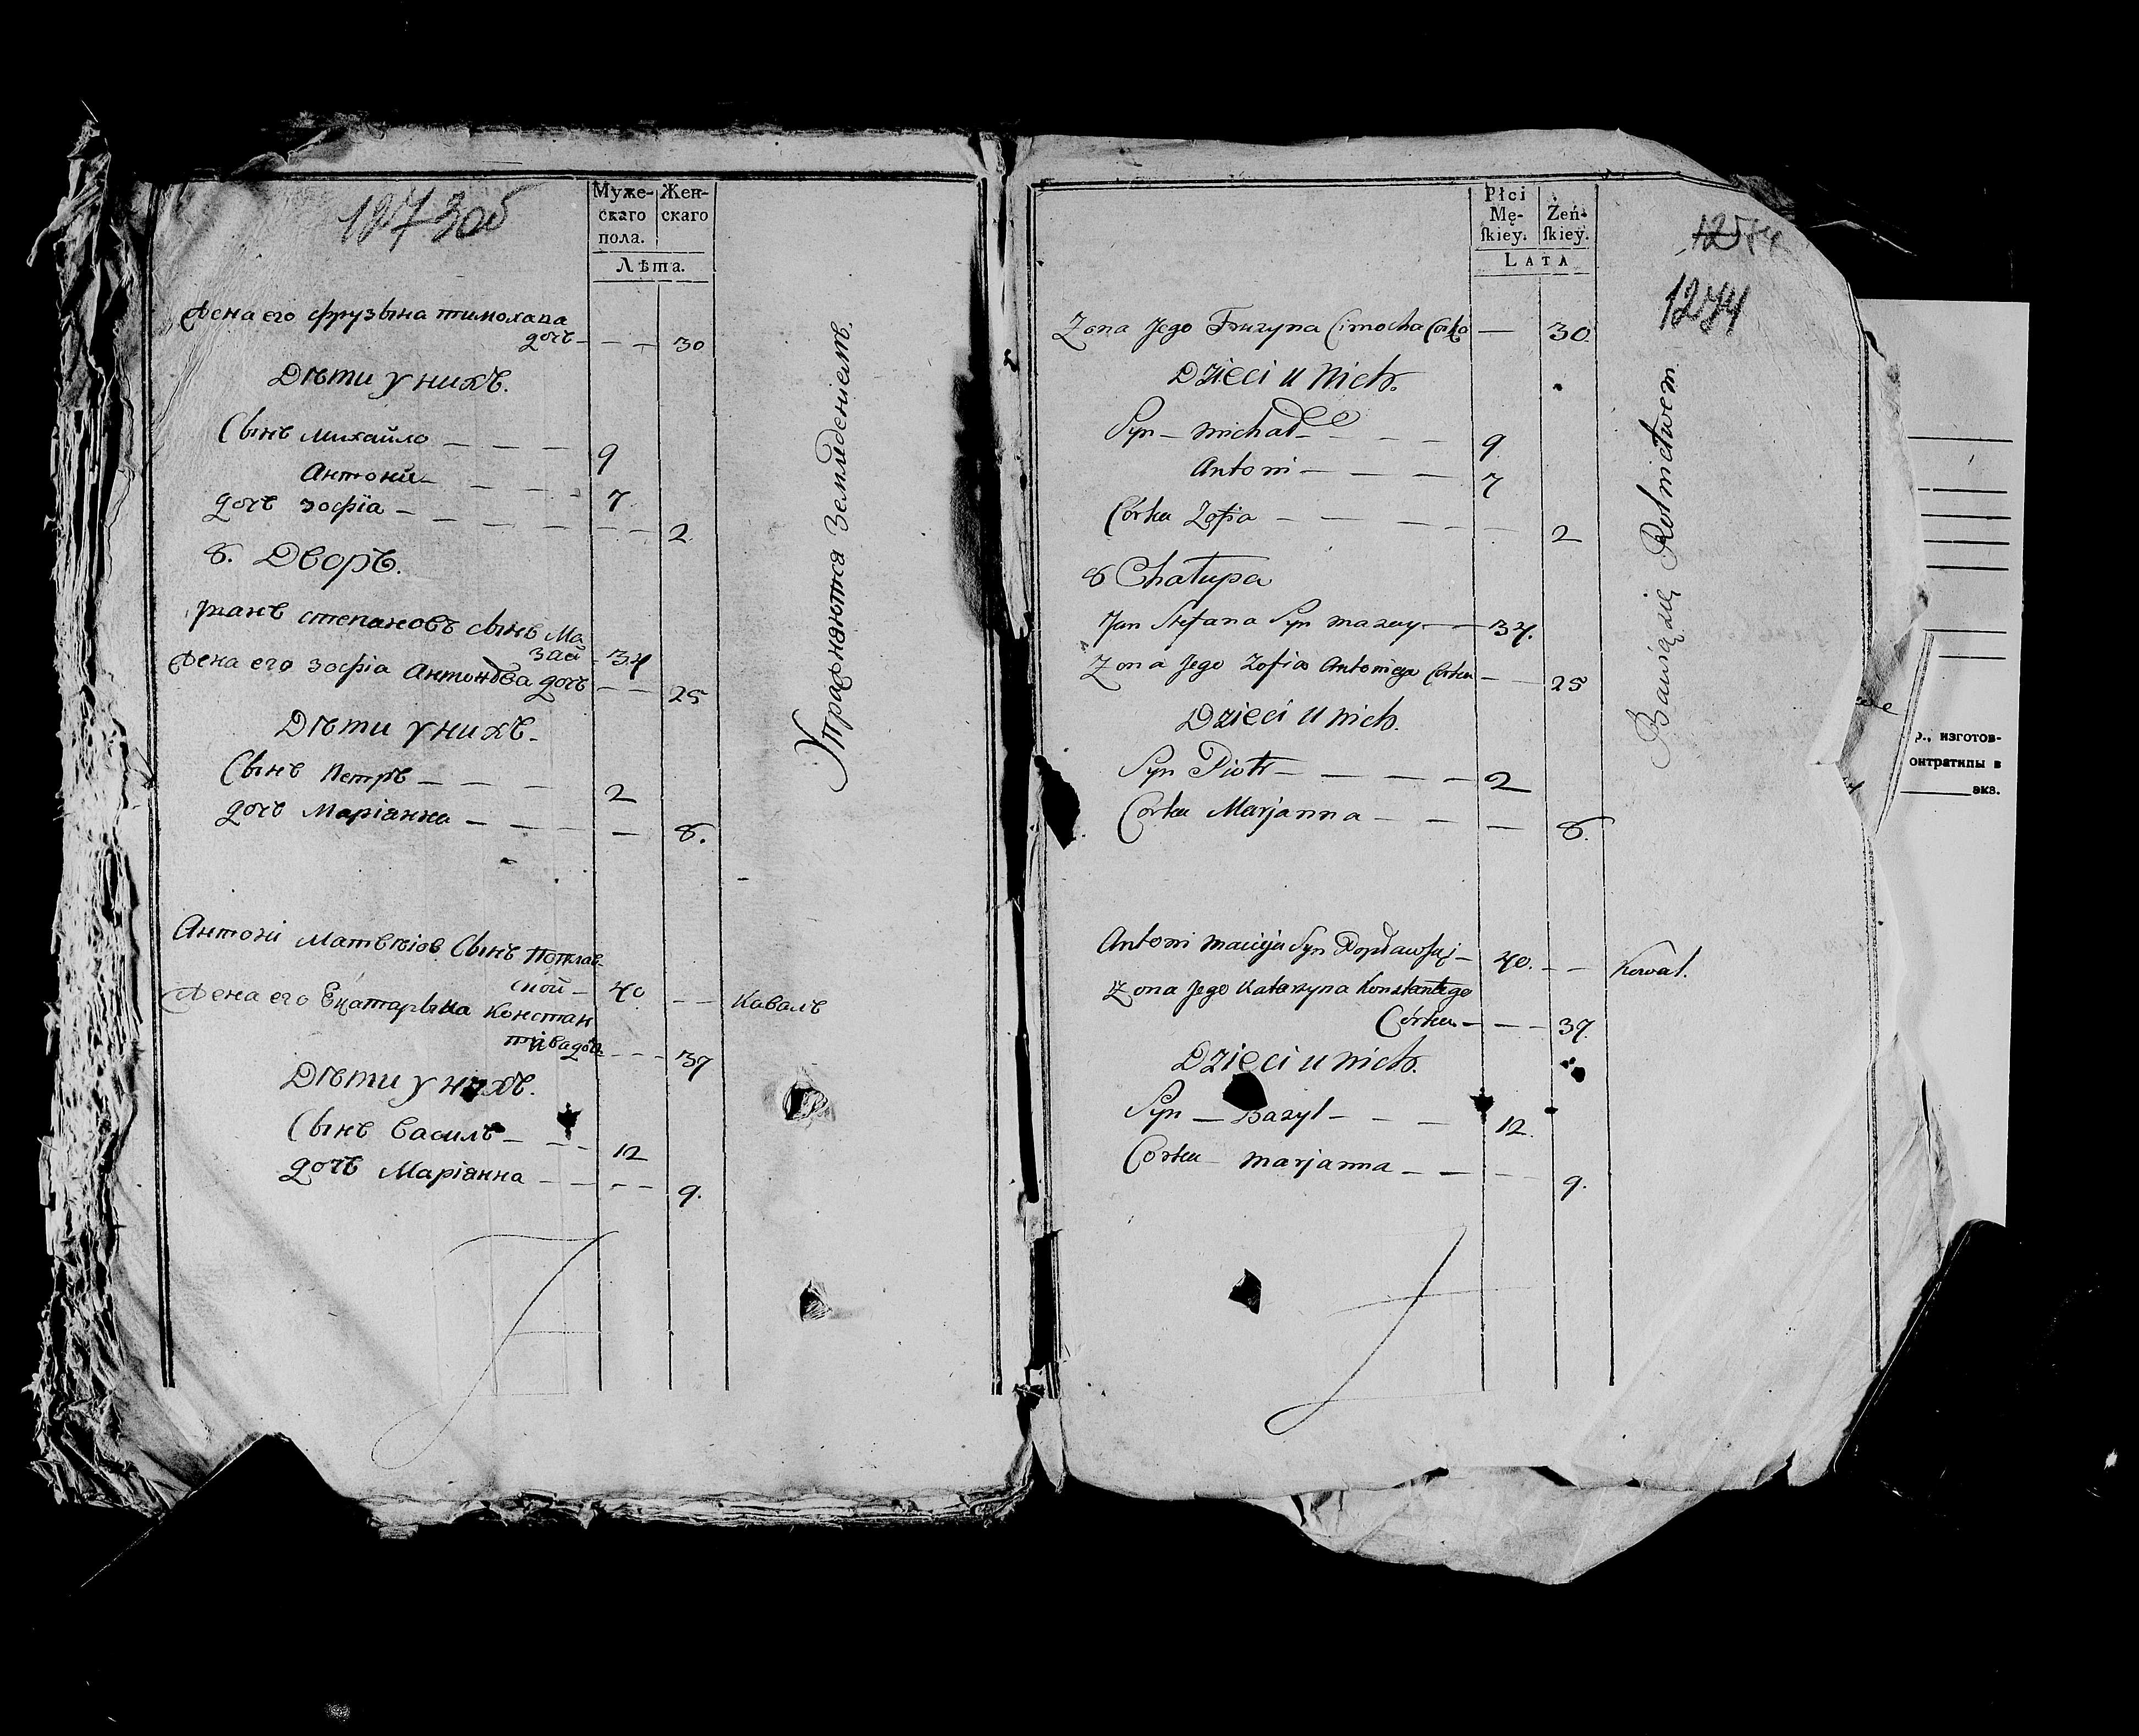 1273 об
Муже- Жен-
скаго скаго
пола.
Лѣта.
Жена его Фрузына тимохава
дочь 30
Дѣти у нихъ.
Сынъ Михайло 9
Антони 7
дочь Зофія 2
8. Дворъ.
Янъ степановъ сынъ Ма
зай 34
Жена его Зофіа Антонова дочь 25
Дѣти у нихъ.
Сынъ Петръ 2
дочь Маріанна 8.
Антоні Матвѣіов Сынъ Поплав-
ской 40 Коваль
Жена его Екатарына Констан
тіва доч 37
Дѣти у нихъ.
Сынъ Василь 12
дочь Маріанна 9.
Упражняются Земледеніемъ.
Płci
Mę- Żeń-
skiey. skiey.
LATA
1274
Zona Jego Fruzyna Cimocha Corka 30
Dzieci u nich.
Syn michał 9
Antoni 7
Córka Zofia 2
8 Chałupa
Jan Stefana Syn mazay 34.
Zona Jego Zofia Antoniego Corka 25
Dzieci u nich.
Syn Piotr 2
Corka Marjanna 8.
Antoni macieja Syn Popławski 40. Kowal.
Zona Jego Katarzyna Konstantego
Córka 37.
Dzieci u nich.
Syn Bazyl 12.
Corka marjanna 9.
Bawią się Rolnictwem
р., изготов-
онтратипы в
экз.